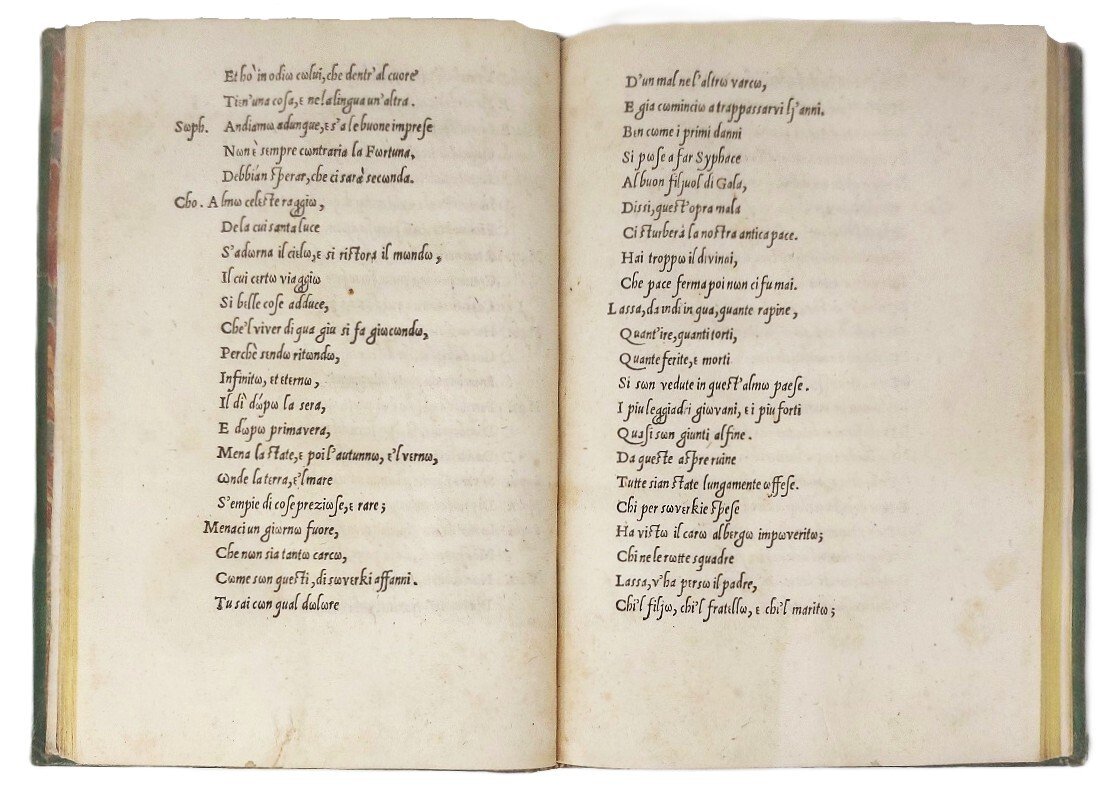 Et hò in odiω cωlui, che dentr'al cuore
Tien'una cosa, ε ne la lingua un'altra.
Sωph. Andiamω adunque, ε s'a le buone imprese
Nωn ὲ sεmpre cωntraria la Fωrtuna,
Debbiàn sperar, che ci sarà secωnda.
Cho. Almω celεste raggiω,
De la cui santa luce
S'adωrna il ciεlω, ε si ristora il mωndω,
Il cui cεrtω viaggiω
Si bεlle cose adduce,
Che'l viver di qua giu si fa giωcωndω,
Perchὲ sendω ritωndω,
Infinitω, et etεrnω,
Il dì dópω la sera,
E dωpω primavera,
Mena la state, ε poi l'autunnω, ε'l vεrnω,
Ωnde la tεrra, ε'l mare
S'empie di cose preziωse, ε rare;
Menaci un giωrnω fuore,
Che nωn sia tantω carcω,
Cωme sωn questi, di sωvεrki affanni.
Tu sai cωn qual dωlωre
D'un mal ne l'altrω varcω,
E gia cωminciω a trappassarvi lj'anni.
Bεn cωme i primi danni
Si pωse a far Syphace
Al buon filjuol di Gala,
Dissi, quest'opra mala
Ci sturberà la nostra antica pace.
Hai troppω il divinai,
Che pace ferma poi nωn ci fu mai.
Lassa, da indi in qua, quante rapine,
Quant'ire, quanti torti,
Quante ferite, ε morti
Si sωn vedute in quest'almω paese.
I piu leggiadri giωvani, ε i piu forti
Quasi sωn giunti al fine.
Da queste aspre ruine
Tutte sian state lungamente ωffese.
Chi per sωvεrkie spese
Ha vistω il carω albεrgω impωveritω;
Chi ne le rωtte squadre
Lassa, v'ha pεrsω il padre,
Chi'l filjω, chi'l fratεllω, ε chi'l maritω;